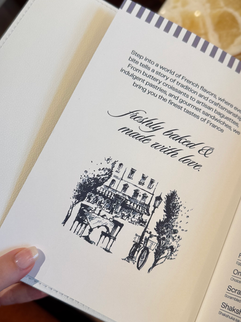 Step into a world of French flavors, where every
bite tells a story of tradition and craftsmanship.
From buttery croissants to artisan baguettes,
indulgent pastries, and gourmet sandwiches, we
bring you the finest tastes of France
freshly baked &
made with love.
Scra
Shaka